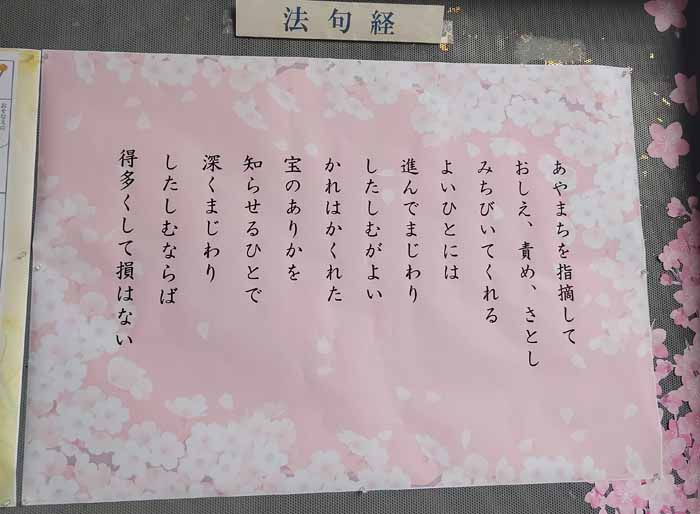 法句経
あやまちを指摘して
おしえ、責め、さとし
みちびいてくれる
よいひとには
進んでまじわり
したしむがよい
かれはかくれた
宝のありかを
知らせるひとで
深くまじわり
したしむならば
得多くして損はない